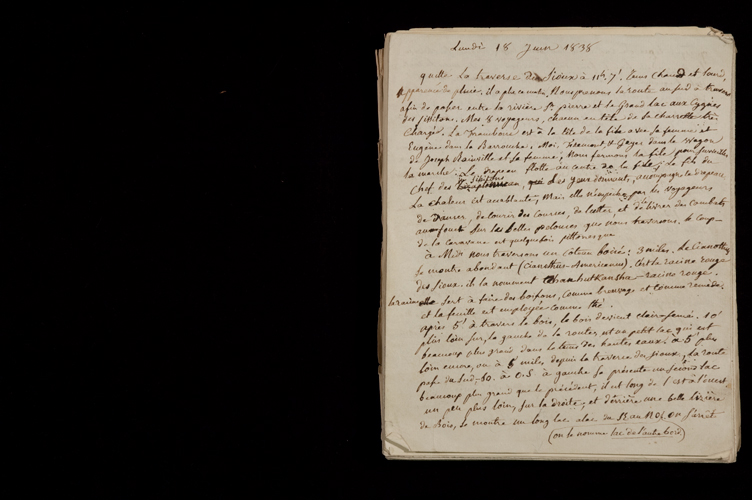 Lundi 18 Juin 1838
quitté la traverse des Sioux à 11h. 7'. Tems chaud et lourd,
apparence de pluie. il a plu ce matin. Nous prenons la route au sud à travers
afin de passer entre la rivière St. pierre et le Grand lac aux Cygnes
des Sissitons. Mes 8 voyageurs, chacun en tête de sa charrette très
chargée. La framboise est à la tête de la file avec sa femme et
Eugène dans la Barrouche. Moi, fremont, & Geyer dans le wagon
de Joseph Rainville et sa femme, Nous fermons la file pour surveiller
la marche. Le drapeau flotte au centre de la file; Le fils du
Chef des Sissitons qui accompagne le drapeau.
La chaleur est accablante, Mais elle n'empêche pas les voyageurs
de Danser, de courir des courses, de lutter, et de livrer des Combats
au fouet sur les belles pelouses que nous traversons. le coup-
de la caravane est quelquefois pittoresque
à Midi nous traversons un côteau boisé: 3 miles. Le Cianothus
se montre abondant (Cianothus-Americanus). C'est la racine rouge
des Sioux. ils la nomment racine rouge.
la racine sert à faire des boissons, comme breuvage et comme remède.
et la feuille est employée comme thé.
après 5' à travers le bois, le bois devient clair-semé. 10'
plus loin sur la gauche de la route, est un petit lac qui est
beaucoup plus grand dans le tems des hautes eaux. à 5' plus
loin encore, ou à 5 miles depuis la traverse des Sioux, La route
passe du Sud-60. à 0.5 à gauche se présente un second lac
beaucoup plus grand que le précédent, il est long de l'est à l'ouest
un peu plus loin, sur la droite, et derrière une belle lisière
de bois, se montre un long lac
(on le nomme lac de l'autre bois)